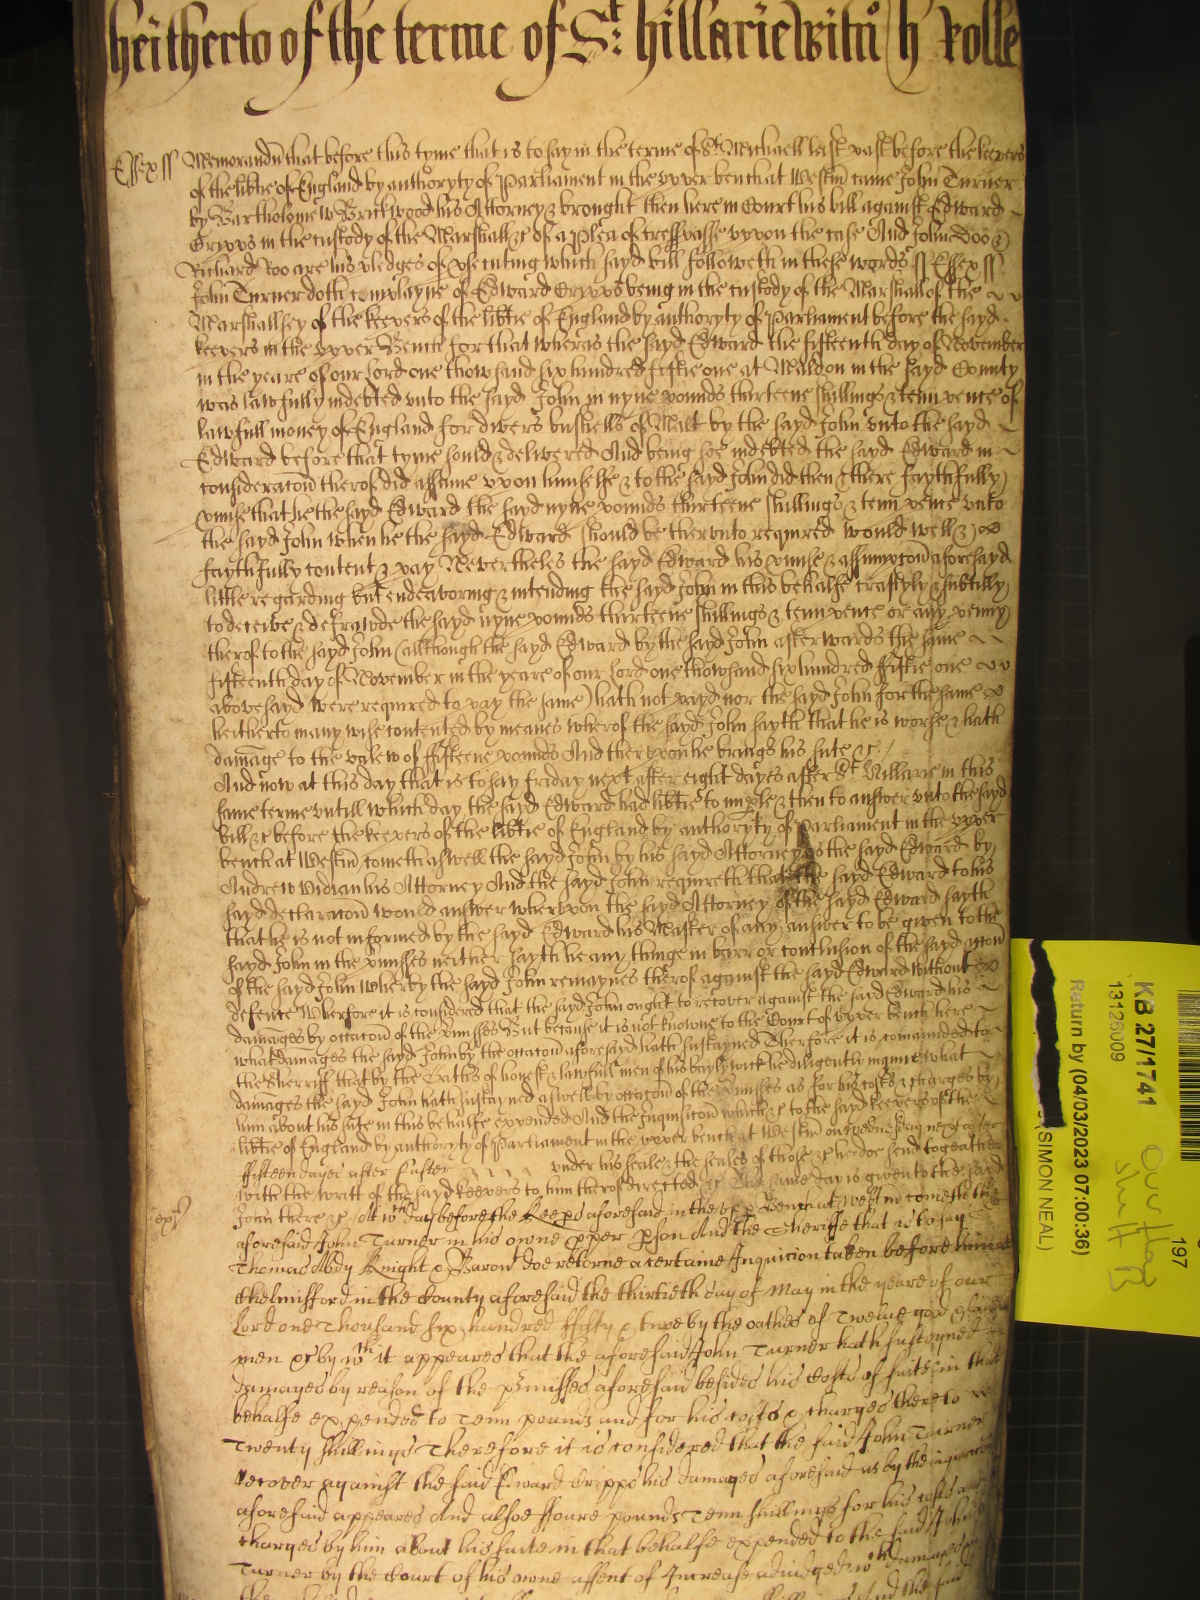 heitherto of the terme of St: hillarie witn h Rolle
Essex ss Memorandn that before this tyme that is to say in the terme of St Michaell last past before the keepers
of the libtie of England by authoryty of Parliament in the upper bench at Westm came John Turner
by Bartholomew Brickwood his Attorney & brought then here in Court his bill against Edward
Cripps in the custody of the Marshall &c of a plea of tresspasse uppon the case And John Doo &
Richard Roo are his pledges of psecuting which sayd bill followeth in these words ss Essex ss
John Turner doth complayne of Edward Cripps being in the custody of the Marshall of the
Marshallsey of the keepers of the libtie of England by authoryty of Parliament before the sayd
keepers in the upper Bench for that wheras the sayd Edward the fifteenth day of November
in the yeare of our Lord one thowsand six hundred fiftie one at Maldon in the sayd County
was lawfully indebted unto the sayd John in nyne pounds thirteene shillings & tenn pence of
lawfull money of England for divers bushells of Malt by the sayd John unto the sayd
Edward before that tyme sould & delivered And being soe indebted the sayd Edward in
consideracon therof did assume uppon himselfe & to the sayd John did then & there faythfully
pmise that he the sayd Edward the sayd nyne pounds thirteene shillings & tenn pence unto
the sayd John when he the sayd Edward should be therunto required would well &
faythfully content & pay Nevertheles the sayd Edward his pmise & assumpcon aforesayd
little regarding but endeavoring & intending the sayd John in this behalfe craftyly & subtilly
to deceive & defrawde the sayd nyne pounds thirteene shillings & tenn pence or any penny
therof to the sayd John (although the sayd Edward by the sayd John afterwards the same
fifteenth day of November in the yeare of our Lord one thowsand six hundred fiftie one
abovesayd were required to pay the same) hath not payd nor the sayd John for the same
heitherto in any wise contented by meanes wherof the sayd John sayth that he is worse & hath
damage to the valew of fifteene pounds And theruppon he brings his sute &c
And now at this day that is to say Friday next after eight dayes after St Hillarie in this
same terme untill which day the sayd Edward had libtie to imple & then to answer unto the sayd
bill &c before the keepers of the libtie of England by authoryty of Parliament in the upper
bench at Westm cometh aswell the sayd John by his sayd Attorney as the sayd Edward by
Andrew Vidian his Attorney And the sayd John requireth that the sayd Edward to his
sayd declaracon would answer wheruppon the sayd Attorney of the sayd Edward sayth
that he is not informed by the sayd Edward his Master of any answer to be given to the
sayd John in the pmisses neither sayth he any thinge in barr or conclusion of the sayd accon
of the sayd John wherby the sayd John remaynes therof against the sayd Edward without
defence Wherfore it is considered that the sayd John ought to recover against the sayd Edward his
damages by occacon of the pmisses But because it is not knowne to the Court of upper bench here
what damages the sayd John by the occacon aforesayd hath sustayned Therfore it is commanded to
the Sherriff that by the Oathes of honest & lawfull men of his baylywick he diligently inquire what
damages the sayd John hath sustayned aswell by occacon of the pmisses as for his costs & charges by
him about his sute in this behalfe expended And the Inquisicon which &c to the sayd keepers of the
libtie of England by authoryty of Parliament in the upper bench at Westm on Wednesday next after
fifteen dayes after Easter under his seale & the seales of those &c he doe send togeather
with the writt of the sayd keepers to him therof directed &c The same day is given to the sayd
John there &c At wch day before the Keeps aforesaid in the upp Bench att Westm comes the
aforesaid John Turner in his owne pper pson And the Sheriffe that is to say
Thomas Abdy Knight & Baront doe retorne a certaine Inquicion taken before him at
Chelmisford in the County aforesaid the thirtieth day of May in the yeare of our
Lord one Thousand six hundred fifty & twoe by the oathes of Twelve good &
men &c by wch it appeares that the aforesaid John Turner hath susteyned
damages by reason of the pmisses aforesaid besides his Costs of suite in that
behalfe expended to Tenn pounds and for his costs & charges thereto
Twenty shillings Therefore it is considered that the said John Turner
recover against the said Edward Cripps his damages aforesaid as by the
aforesaid appeares And alsoe ffoure pounds Tenn shillings for his costs and
charges by him about his suite in that behalfe expended to the said John
Turner by the Court of his owne assent of Increase adiudged wch damages
KB 27/1741
13126009
Return by (04/03/2023 07:00:36)
(SIMON NEAL)
197